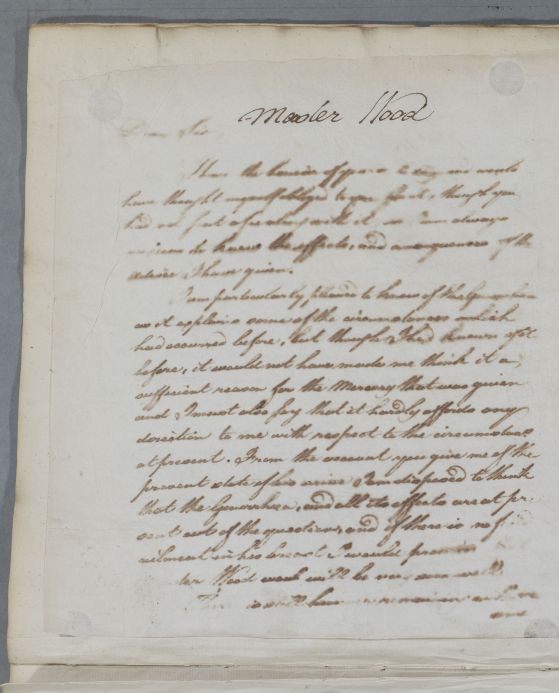 Master Wood
Dear Sir
I have the honour of yours to day and would
have thought myself obliged to you for it, though you
had not sent a fee along with it, as I am always
to know the effects, and consequences of the
advice I have given.
I am particularly pleased to know of the Gonorrhea
as it explains some of the circumstances which
had occurred before, but though I had known of it
before, it would not have made me think it a
sufficient reason for the Mercury that was given
and I must also say that it hardly affords any
direction to me with respect to the circumstances
at present. From the account you give me of the
present state of his urine I am disposed to think
that the Gonorrhea, and all its effects are at pre
sent out of the question, and if there is no
ailment in his breast I would
Wood will be very soon well
There is still however remaining
one